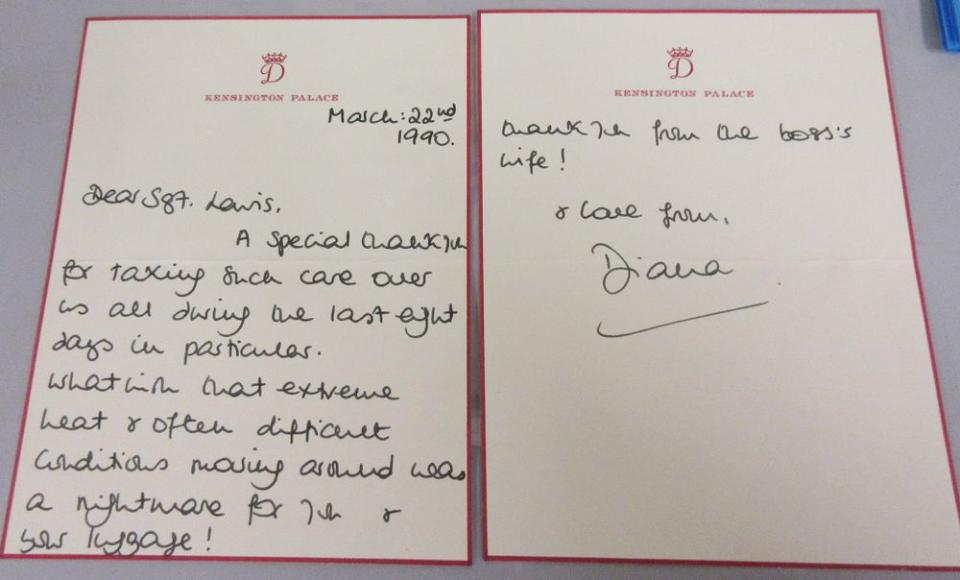 D
KENSINGTON PALACE
March: 22nd
1990.
Dear Sgt. Lewis,
A special thank you
for taking such care over
us all during the last eight
days in particular.
What with that extreme
heat & often difficult
conditions moving around was
a nightmare for you &
your luggage!
D
KENSINGTON PALACE
thank you from the boss's
wife!
& love from,
Diana